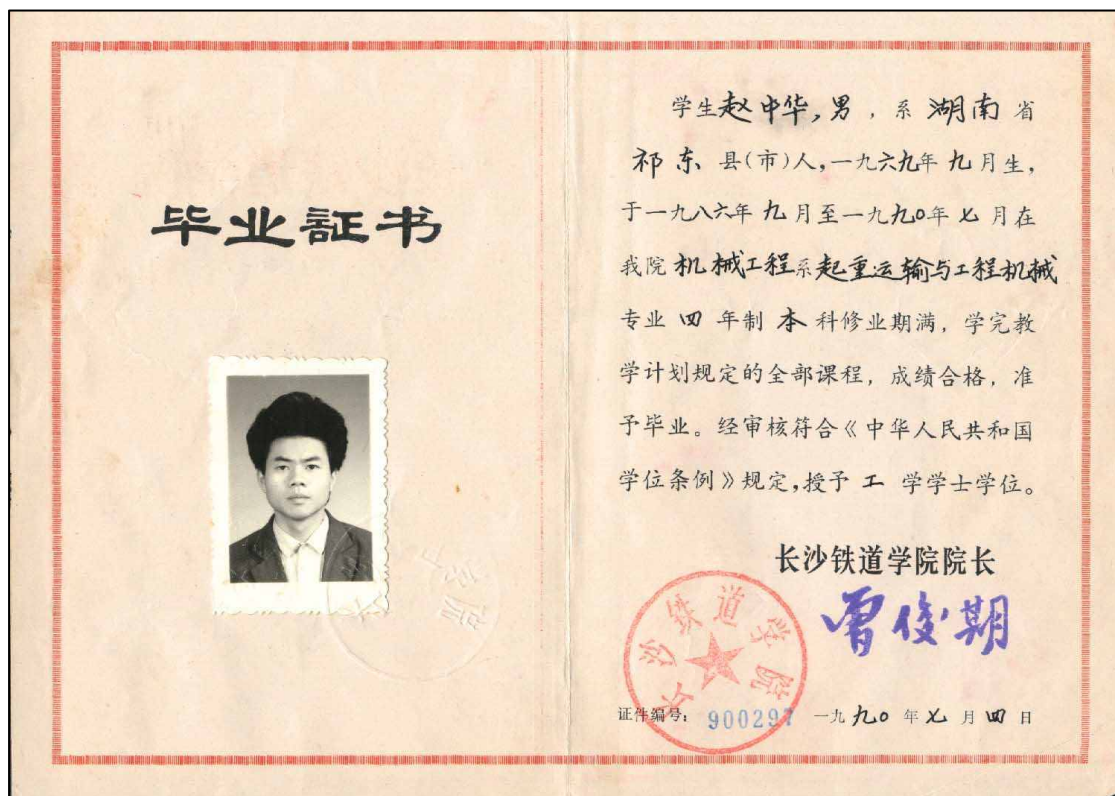 毕业証书
学生赵中华,男,系湖南省
祁东县(市)人,一九六九年九月生,
于一九八六年九月至一九九〇年七月在
我院机械工程系起重运输与工程机械
专业四年制本科修业期满,学完教
学计划规定的全部课程,成绩合格,准
予毕业。经审核符合《中华人民共和国
学位条例》规定,授予工学学士学位。
长沙铁道学院院长
曾俊期
长沙铁道学院
证件编号:900297 一九九〇年七月四日